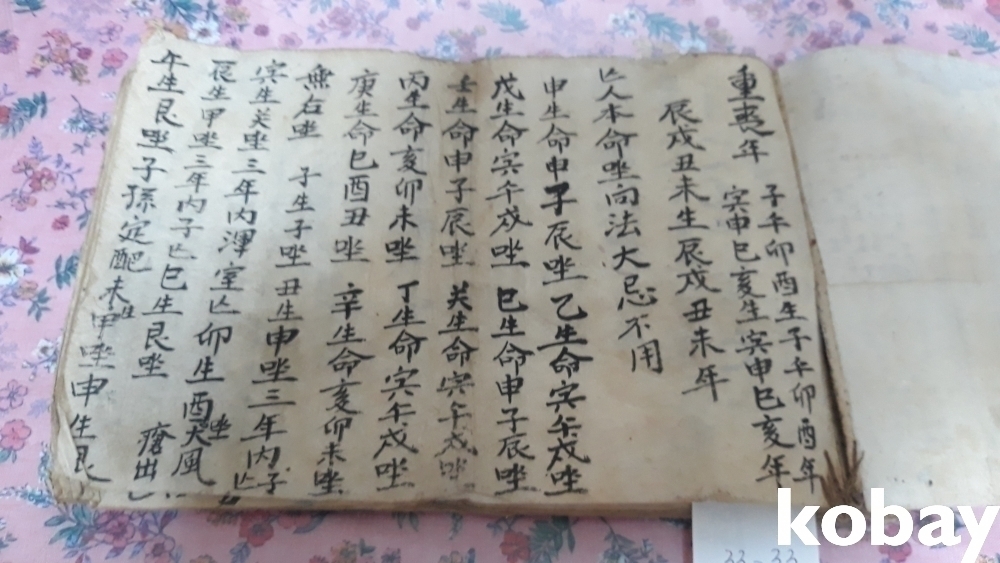 重喪年 子午卯酉生子午卯酉年
寅申巳亥生寅申巳亥年
辰戌丑未生辰戌丑未年
亡人本命坐向法大忌不用
申生命申子辰唑 乙生命寅午戌唑
戊生命寅午戌唑 巳生命申子辰唑
壬生命申子辰唑 癸生命寅午戌唑
丙生命亥卯未唑 丁生命寅午戌唑
庚生命巳酉丑唑 辛生命亥卯未唑
無右唑 子生子唑丑生申唑三年内子亡
寅生癸唑三年内渾室亡卯生酉唑
辰生甲唑三年内子亡巳生艮唑 大風
午生艮唑子孫定配未生甲唑申生艮
瘡出
kobay
33-33